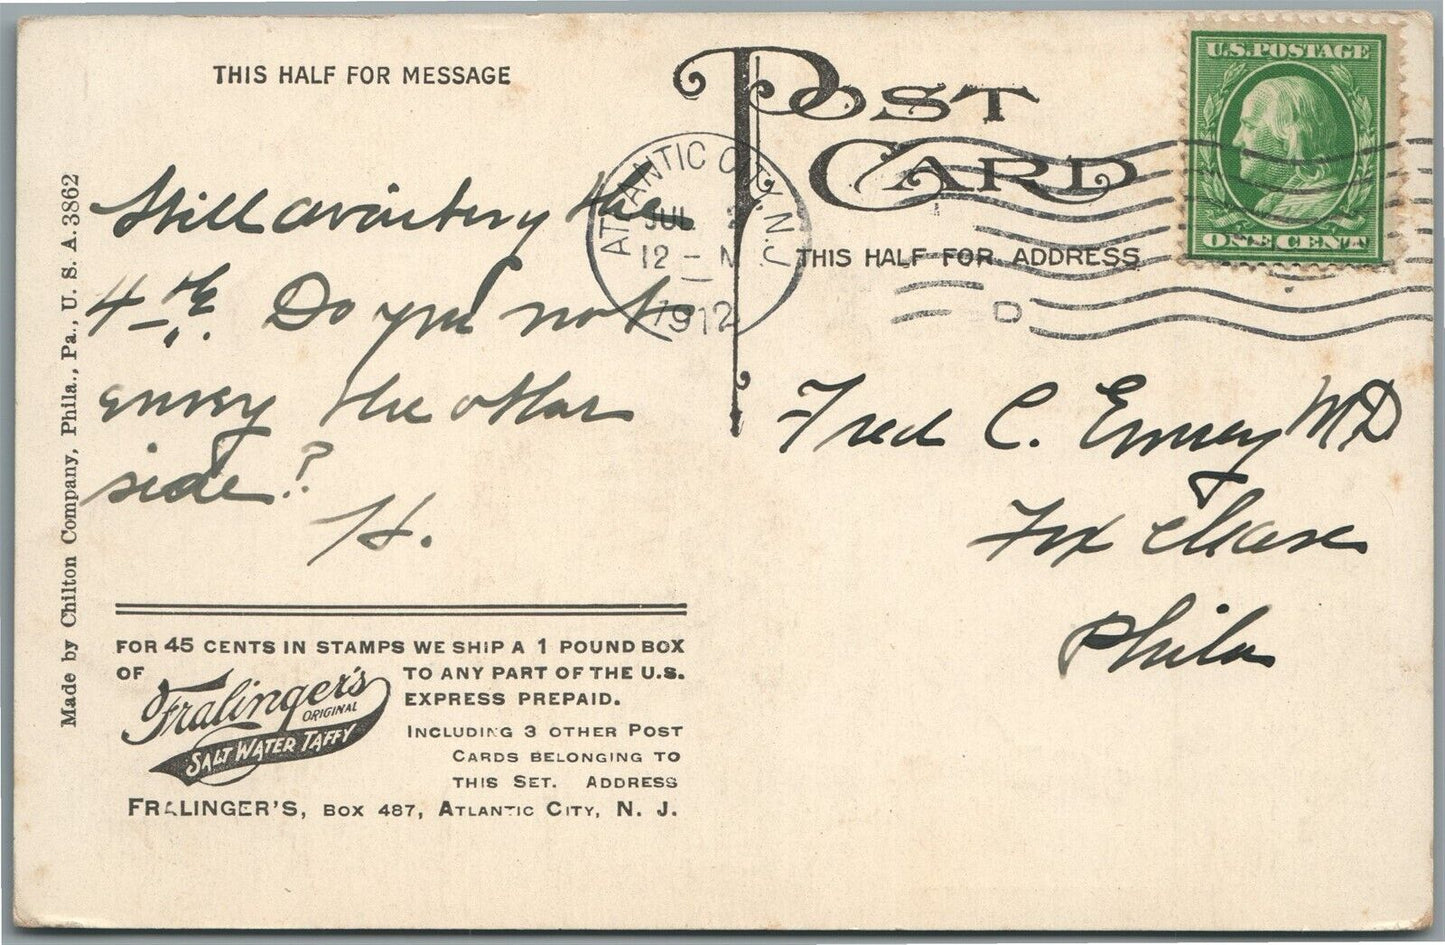 THIS HALF FOR MESSAGE
POST CARD
U.S. POSTAGE
ONE CENT
ATLANTIC CITY, N.J.
JUL 2
12 - M
1912
D
THIS HALF FOR ADDRESS
Still awaiting the
4-th. Do you not
envy the other
side?
H.
Fred C. Emrey MD
Fox Chase
Phila
FOR 45 CENTS IN STAMPS WE SHIP A 1 POUND BOX
OF Fralinger's ORIGINAL SALT WATER TAFFY TO ANY PART OF THE U.S.
EXPRESS PREPAID.
INCLUDING 3 OTHER POST
CARDS BELONGING TO
THIS SET. ADDRESS
FRALINGER'S, BOX 487, ATLANTIC CITY, N. J.
Made by Chilton Company, Phila., Pa., U. S. A. 3862